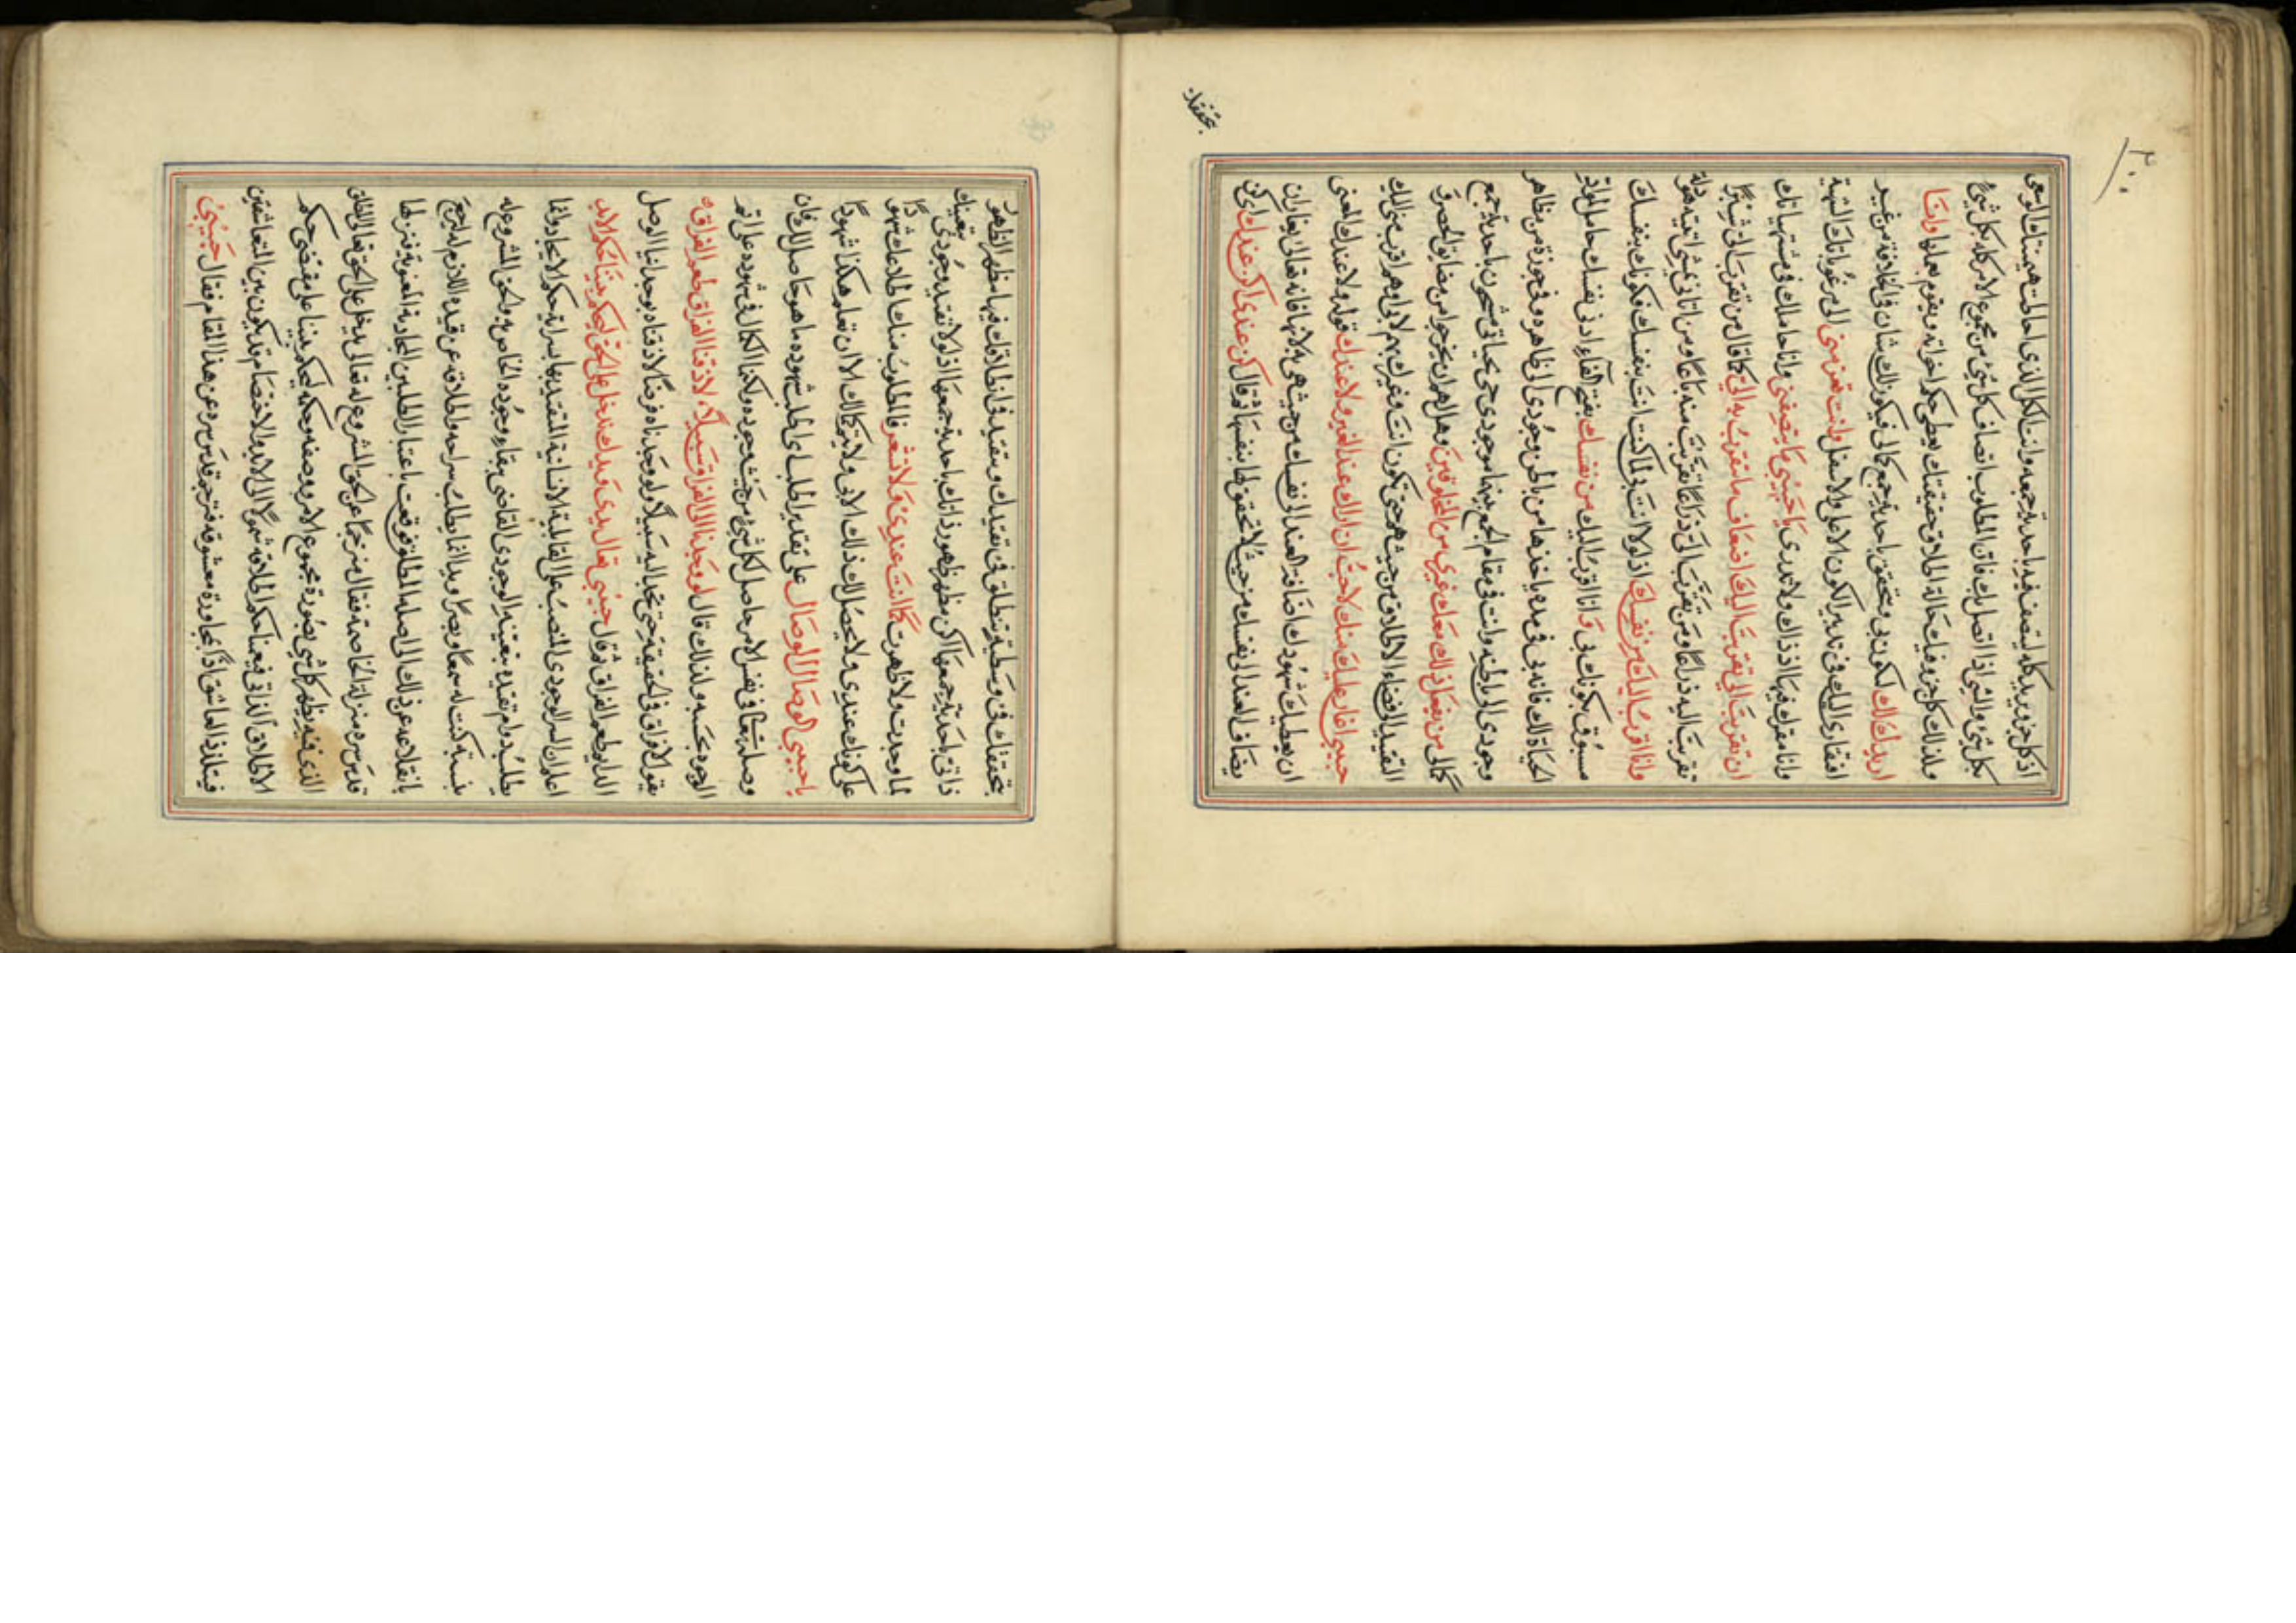 اذ كل جزء يريد كله ليتصف فيه باحدية جمعه وانت الكل الذى احاطت هيمنتك الوسعى
بكل شئ والشئ اذا اتصل بك فاق المطلوب اتصاف كل شئ من مجموع الامر كله بكل شئ
ولذلك كل جزء فيك حالة اطلاق حقيقتك يعطى حكم اخواته ويقوم بعملها وانا
اريدك لك لكونى بى متحقق باحدية جمع كمالى فيكون لك شان فى الخلافة من غير
افتقارى اليك فى تدبير الكون الاعلى والاسفل وانت تفر منى الى مرغوباتك الشهية
وانا مقرك فيها اذ ذاك ولا تدرى يا حبيبى ما تنصفنى وانا حاملك فى مشتهياتك
ان تقربت الى تقربت اليك اضعاف ما تقربت به الى كما قال من تقرب الى شبرا
تقربت اليه ذراعا ومن تقرب الى ذراعا تقربت منه باعا ومن اتانى يمشى اتيته هرولة
وانا اقرب اليك من نفسك اذ لولا انت بى لما كنت انت بنفسك فكونك بنفسك
مسبوق بكونك بى فانا اقرب اليك من نفسك بفتح الفاء اذ فى نفسك حامل لمواد
الحياة لك فانه بى فى مده ياخذها من باطن وجودى الى ظاهره وفى جوزة من ظاهر
وجودى الى باطنه وانت فى مقام الجمع بينهما موجود حى بحياتى مشحون باحدية جمع
كمالى من يفعل ذلك معك غيرى من المخلوقين وهل لهم ان يخرجوا من مضايق الحصر فى
القيد الى فضاء الاطلاق من حيث هم حتى تكون انت وغيرك بهم لا بى او هم اقرب منى اليك
حبيبى اغار عليك منك لا احب ان اراك عند الغير ولا عندك قوله ولا عندك المعنى
ان يعطيك شهودك اضافة العند الى نفسك من حيث هى به لا بها فانه تعالى يغار ان
يضاف العند الى نفسك من حيث لا تحقق لها بنفسها فقال كن عندى اكن عندك اى كن
بتحققك
بتحققك فى وسطية وتنطلق فى تقيدك وتتقيد فى اطلاقك فيها مظهر الظهور
ذاتى باحدية جمعها اكن مظهر ظهور ذاتك باحدية جمعها اذ لولا تقيد وجودى بتعينك
لما وجدت ولا ظهرت كما انت عندى ولا تشعر فالمطلوب منك اطلاعك شهودا
على كونك عندى ولا يحصل لك ذلك الا بى ولا يتم كمالك الا ان تعلم هكذا شهودا
يا حبيبى الوصال الوصال على تقدير اطلب اى اطلب شهوده ما هو حاصل لك فان
وصلنا فى نفس الامر حاصل لكل شئ من حيث وجوده ولكن الكمال فى شهوده على اتم
الوجوه بحسبه ولذلك قال لو وجدنا الى الفراق سبيلا لاذقنا الفراق طعم الفراق
يقول لا فراق فى الحقيقة حتى نجد اليه سبيلا ولو وجدناه فرضا لاذقناه بوجداننا الوصل
الدايم طعم الفراق ثم قال حبيبى تعال يدى ويدك ندخل على الحق ليحكم بيننا حكم الابد
اعلم ان السر الوجودى المنصب على القابلية الانسانية المتقيد بها بسراية حكم الايجاد دائما
يطلب دوام تقيده بتعينه الوجودى القاضى ببقاء وجوده الخاص به والحق المشروع له
بنسبة كنت له سمعا وبصرا ويدا انما يطلب سراحه واطلاقه عن قيده اللازم له ليرجع
بانقلاعه عن ذلك الى اصله المطلق فوقعت باعتبار الطلبين المجاذبة المعنوية فنزلها
قدس سره منزلة المخاصمة فقال مترجما عن الحق المشروع له تعالى يدخل على الحق تعالى المطلق
الذى فيه يظهر كل شئ بصورة مجموع الامر ووصفه وحكمه ليحكم بيننا على مقتضى حكم
الاطلاق الذاتى فيعمنا حكم اطلاقه شمولا الى الابد والاختصام قد يكون بين المتعاشقين
فيتلذذ العاشق اذا بمحاورة معشوقه فترجم قدس سره عن هذا المقام فقال حبيبى